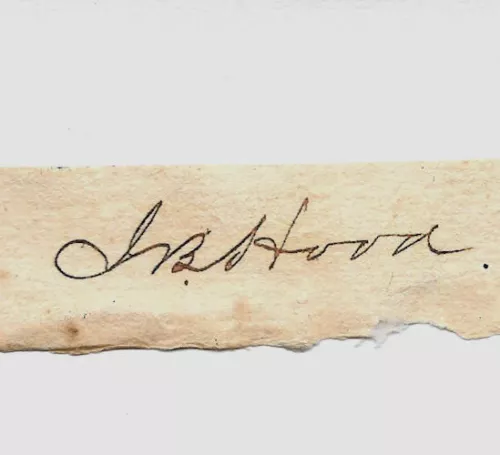 J B Hood.